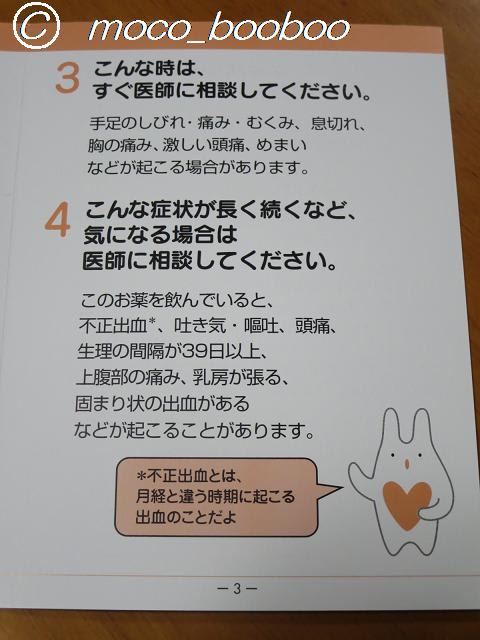 © moco_booboo
3 こんな時は、
すぐ医師に相談してください。
手足のしびれ・痛み・むくみ、息切れ、
胸の痛み、激しい頭痛、めまい
などが起こる場合があります。
4 こんな症状が長く続くなど、
気になる場合は
医師に相談してください。
このお薬を飲んでいると、
不正出血*、吐き気・嘔吐、頭痛、
生理の間隔が39日以上、
上腹部の痛み、乳房が張る、
固まり状の出血がある
などが起こることがあります。
*不正出血とは、
月経と違う時期に起こる
出血のことだよ
－3－